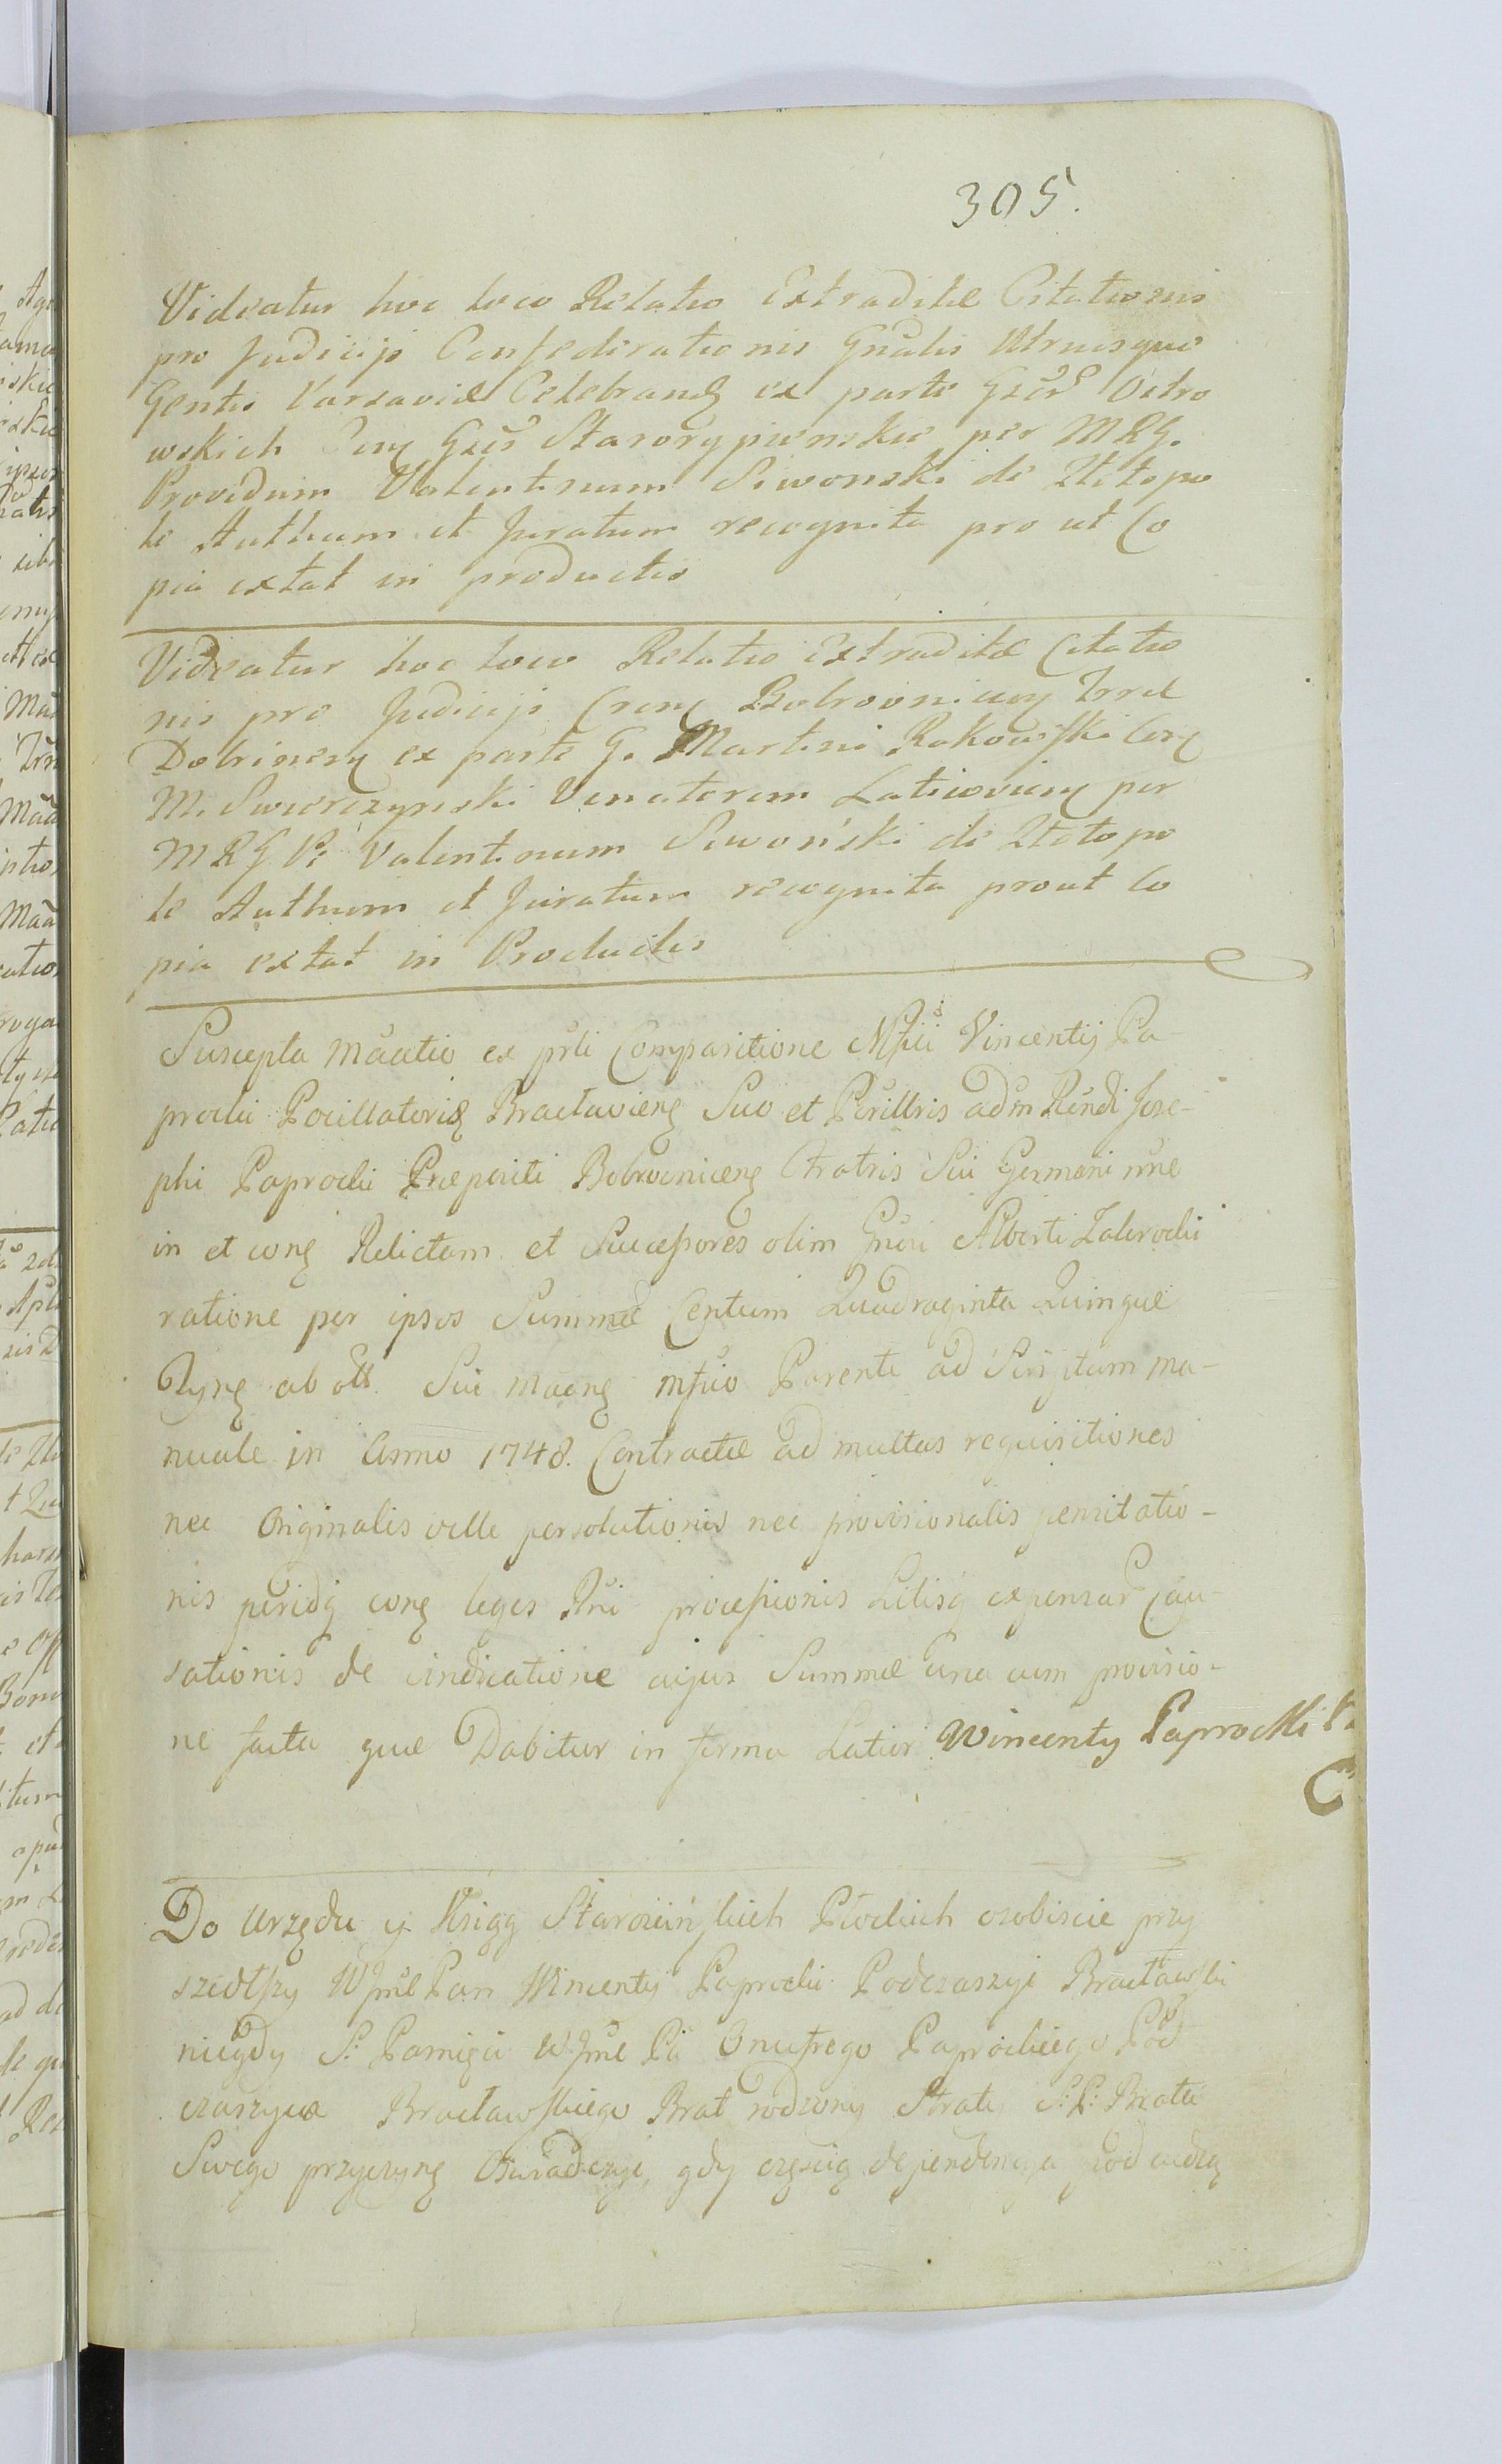 305.
Videatur hoc loco Relatio Extraditæ Citationis
pro Judicijs Confederationis Gñalis Utriusque
Gentis Varsaviæ Celebran ex parte Ostro
wskich Starorypienskie per MRG.
Providum Valentinum Siwonski de Zlotopo
le Authum et Juratum recognita pro ut Co
pia extat in productis
Videatur hoc loco Relatio Extraditæ Citatio
nis pro Judicijs Bobrovnicen Trræ
Dobrinen ex parte G. Martini Rakowski
M. Swierczynski Venatorem Laticovien per
MRG Valentinum Siwoński de Zlotopo
le Authum et Juratum recognita prout Co
pia extat in Productis
Suscepta Mãctio ex prñti Comparitione Mfici Vincentij Pa-
procki Pocillatoris Braclavien Suo et Perillris adm Rñdi Jose-
phi Paprocki Præpositi Bobrovnicen Fratris Sui Germani nñe
in et con Relictam et Successores olim Gñsi Alberti Zakrocki
ratione per ipsos Summæ Centum Quadraginta Quinque
ab olī Sui Mfico Parente ad Scriptum ma-
nuale in Anno 1748. Contractæ ad multas requisitiones
nec Originalis velle persolutionis nec provisionalis pensitatio-
nis con leges Rñi processionis Litisq expensar Cau-
sationis de vindicatione cujus Summæ una cum provisio-
ne facta quæ Dabitur in forma Latiori Wincenty Paprocki
Do Urzędu y Ksiąg Staroscińskich Płockich osobiscie przy
szedłszy Wjmć Pan Wincenty Paprocki Podczaszyc Bracławski
niegdy S: Pamięci Wjmć Pã Onufrego Paprockiego Pod
czaszyca Bracławskiego Brat rodzony Straty S: P: Brata
Swego przyczynę Oswiadczyć, gdy częscią dependencya pod cudzą